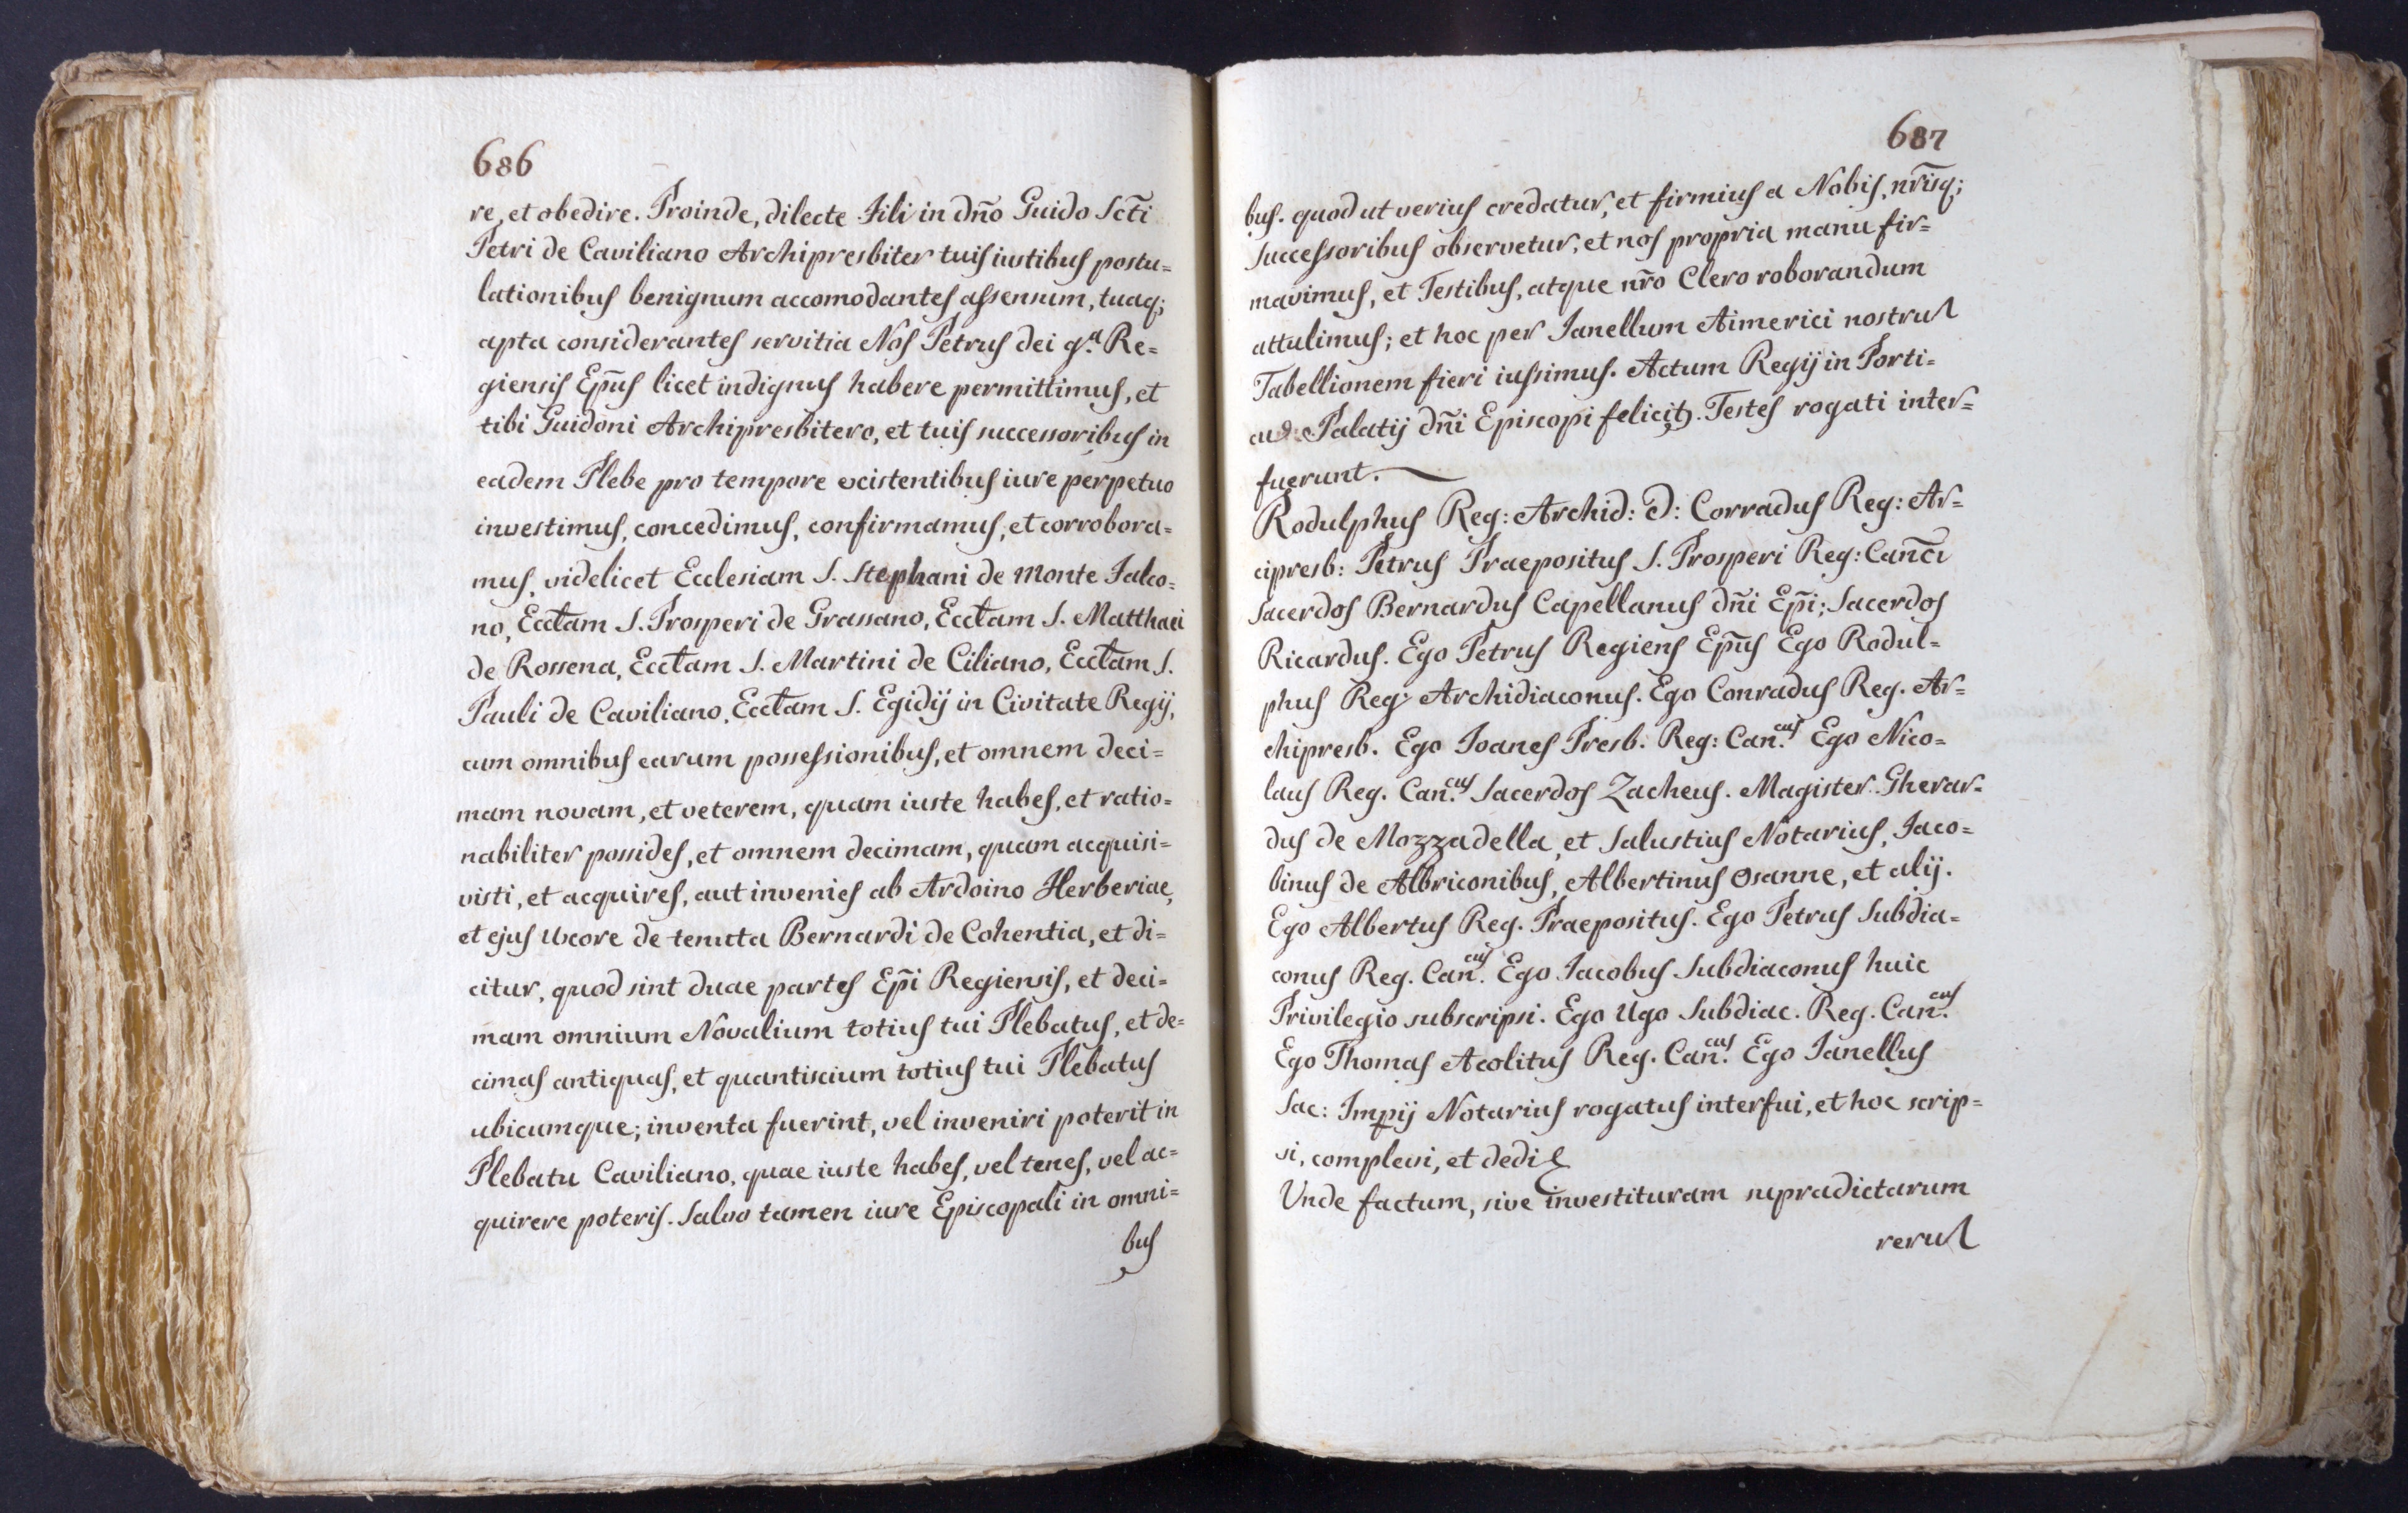 686
re, et obedire. Proinde, dilecte Fili in dño Guido Scti
Petri de Caviliano Archipresbiter tuis iustibus postu=
lationibus benignum accomodantes assensum, tuaq;
apta considerantes servitia Nos Petrus dei g.ª Re=
giensis Epũs licet indignus habere permittimus, et
tibi Guidoni Archipresbitero, et tuis successoribus in
eadem Plebe pro tempore existentibus iure perpetuo
investimus, concedimus, confirmamus, et corrobora=
mus, videlicet Ecclesiam S. Stephani de Monte Falco=
no, Ecctam S. Prosperi de Grassano, Ecctam S. Matthaei
de Rossena, Ecctam S. Martini de Ciliano, Ecctam S.
Pauli de Caviliano, Ecctam S. Egidij in Civitate Regij,
cum omnibus earum possessionibus, et omnem deci=
mam novam, et veterem, quam iuste habes, et ratio=
nabiliter possides, et omnem decimam, quam acquisi=
visti, et acquires, aut invenies ab Ardoino Herberiae,
et ejus Uxore de tenuta Bernardi de Cohentia, et di=
citur, quod sint duae partes Epĩ Regiensis, et deci=
mam omnium Novalium totius tui Plebatus, et de=
cimas antiquas, et quantiscium totius tui Plebatus
ubicumque; inventa fuerint, vel inveniri poterit in
Plebatu Caviliano, quae iuste habes, vel tenes, vel ac=
quirere poteris. Salvo tamen iure Episcopali in omni=
bus
687
bus. quod ut verius credatur, et firmius a Nobis, nr̃isq;
successoribus observetur, et nos propria manu fir=
mavimus, et Testibus, atque nr̃o Clero roborandum
attulimus; et hoc per Ianellum Aimerici nostrum
Tabellionem fieri iussimus. Actum Regij in Porti=
cu Palatij dñi Episcopi felicit). Testes rogati inter=
fuerunt.
Rodulphus Reg: Archid: D: Corradus Reg: Ar=
cipresb: Petrus Praepositus S. Prosperi Reg: Cañci
Sacerdos Bernardus Capellanus dñi Epĩ; Sacerdos
Ricardus. Ego Petrus Regiens Epũs Ego Rodul=
phus Reg: Archidiaconus. Ego Conradus Reg. Ar=
chipresb. Ego Ioanes Presb. Reg: Can.cus Ego Nico=
laus Reg. Can.cus Sacerdos Zacheus. Magister Gherar=
dus de Mozzadella, et Salustius Notarius, Iaco=
binus de Albriconibus, Albertinus Osanne, et alij.
Ego Albertus Reg. Praepositus. Ego Petrus Subdia=
conus Reg. Can.cus Ego Iacobus Subdiaconus huic
Privilegio subscripsi. Ego Ugo Subdiac. Reg. Can.cus
Ego Thomas Acolitus Reg. Can.cus Ego Ianellus
Sac: Impij Notarius rogatus interfui, et hoc scrip=
si, complevi, et dedi
Unde factum, sive investituram supradictarum
rerum